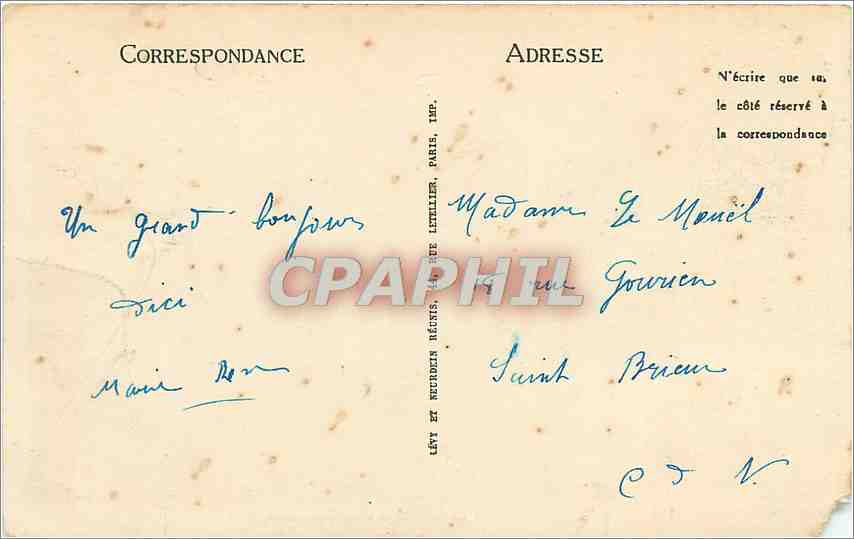 CORRESPONDANCE
Un grand bonjour
d'ici
Marie
LÉVY ET NEURDEIN RÉUNIS, 44, RUE LETELLIER, PARIS, IMP.
ADRESSE
N'écrire que sur
le côté réservé à
la correspondance
Madame Le Mouël
18 rue Gourien
Saint Brieuc
C d N.
CPAPHIL